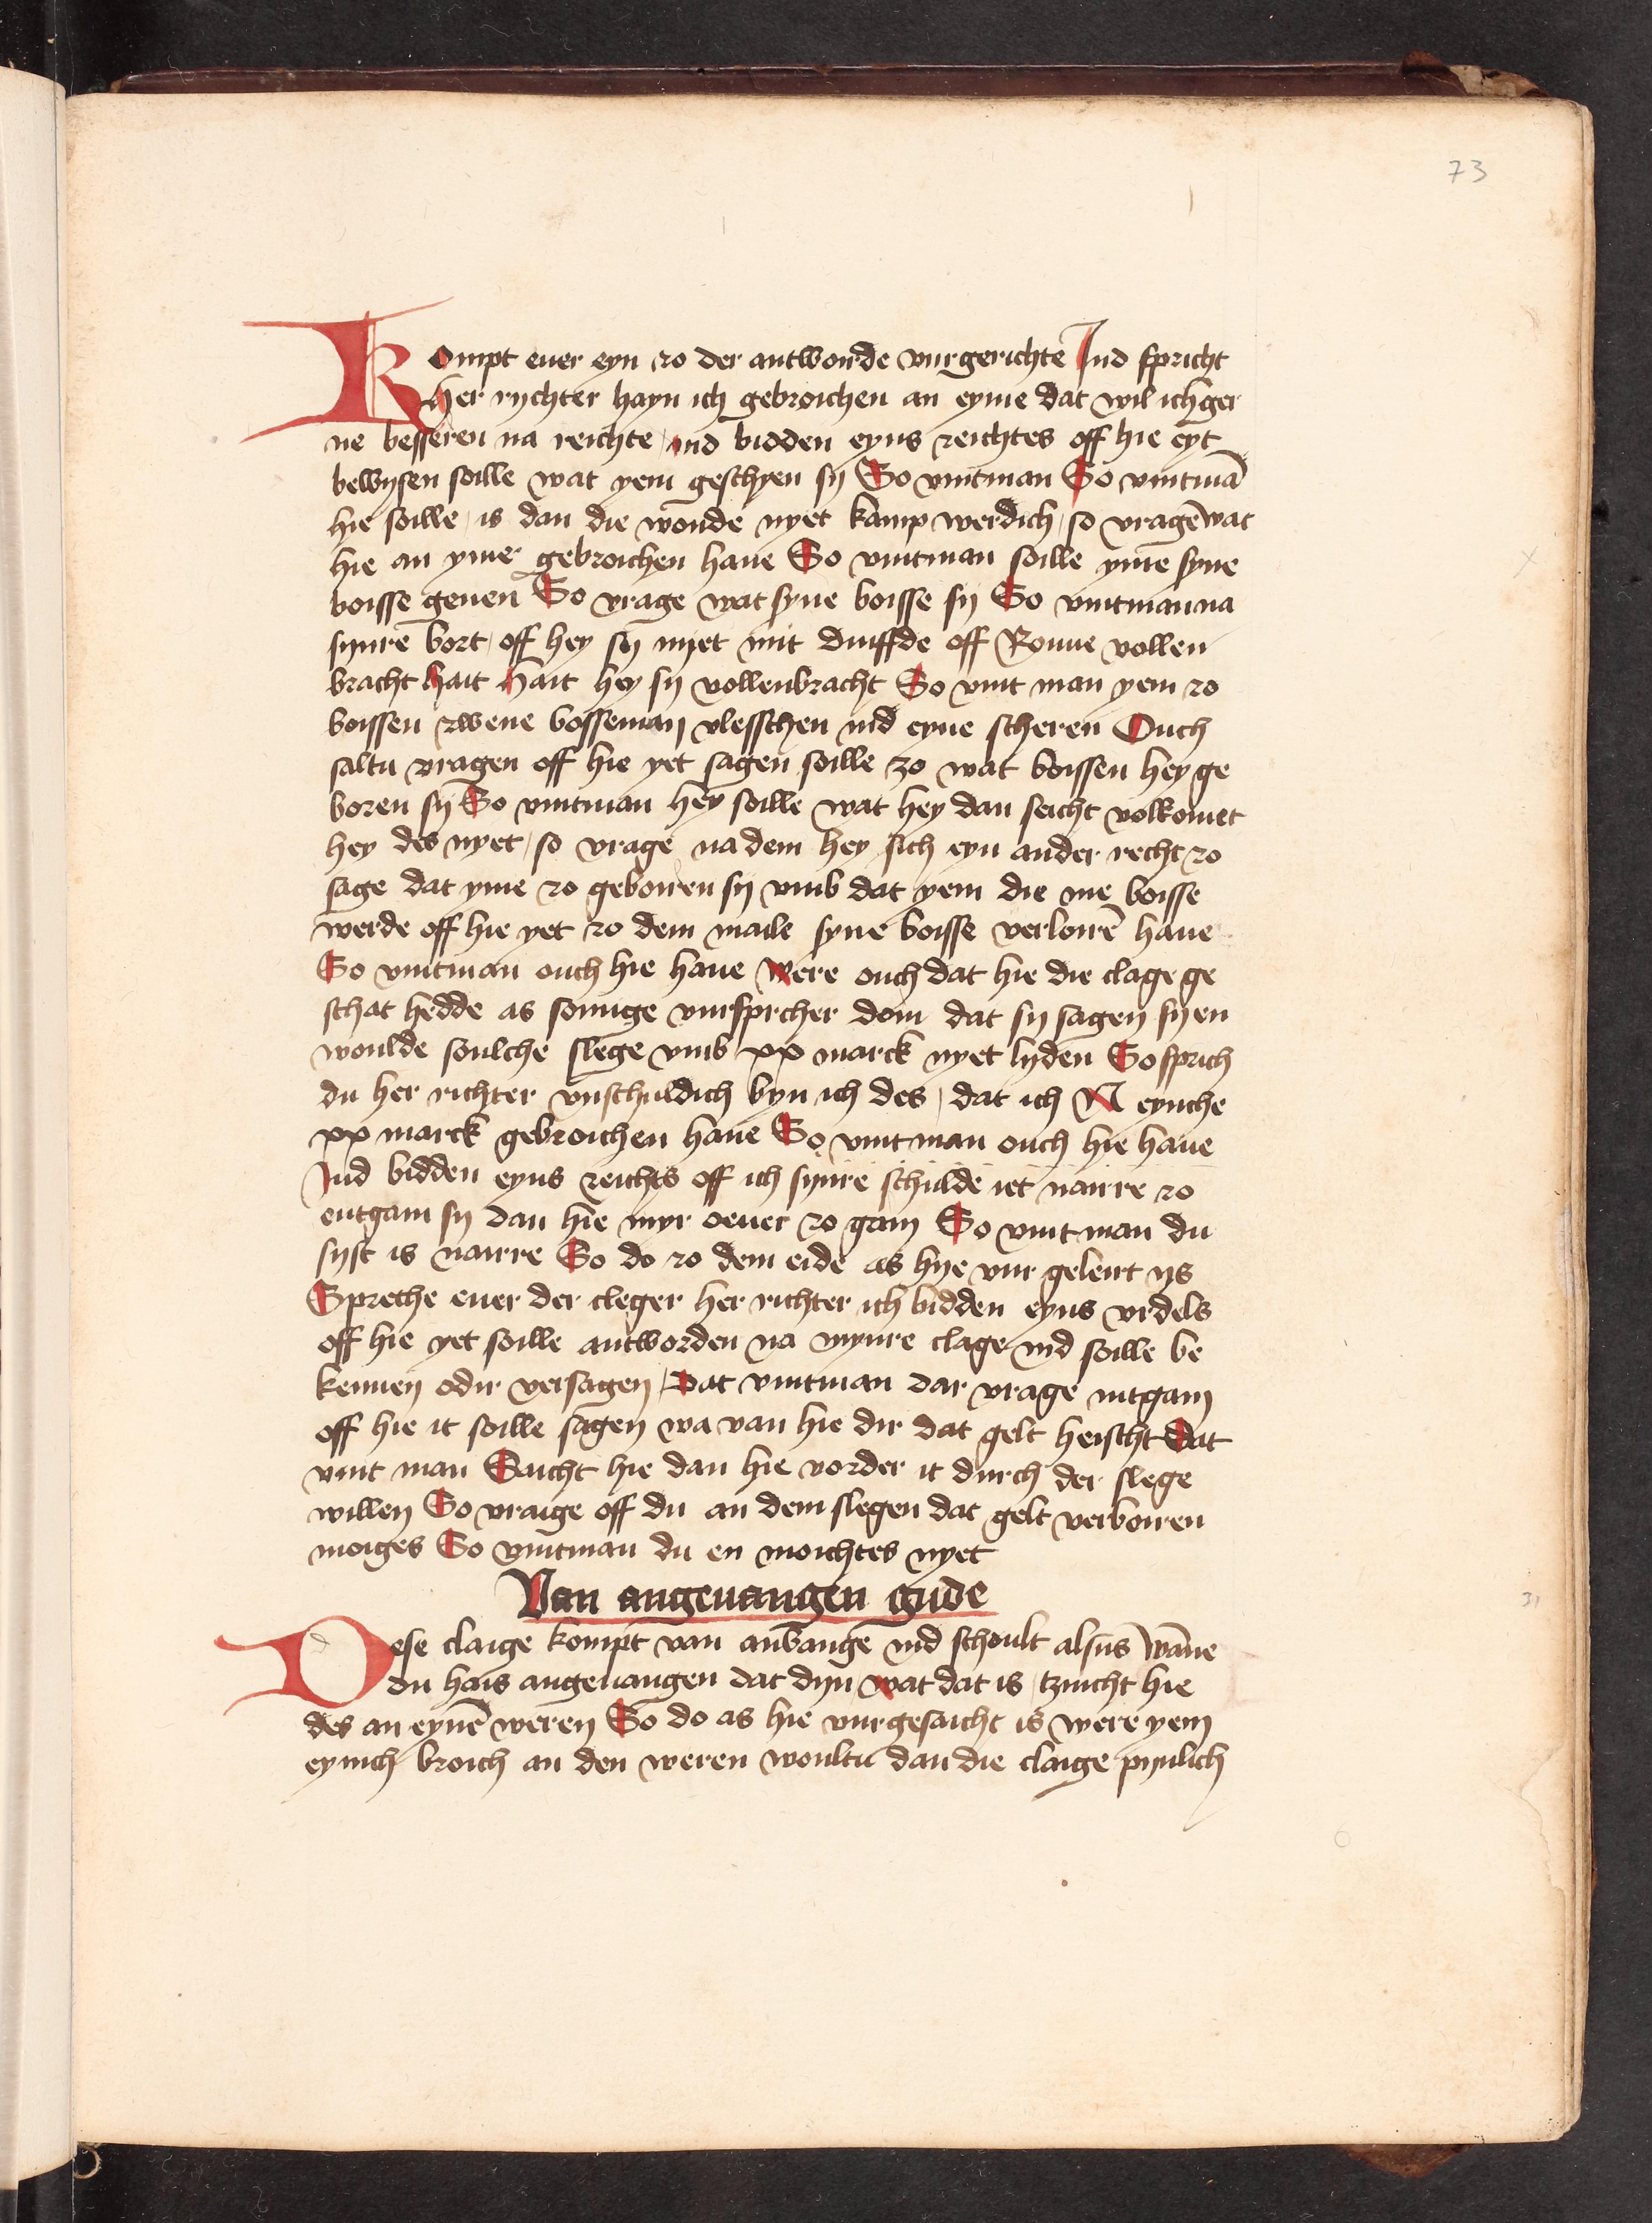 73
Kompt euer eyn zo der antworde vur gerichte Ind spricht
her rychter hayn ich gebroichen an eyme dat wil ich ger
ne besseren na reichte ind bidden eyns reichtes off hie eyt
bewysen soille wat yem geschyen sy So vintman So vintmā
hie soille is dan die wonde nyet kamp werdich so vragē wat
hie an ymer gebroichen haue So vintman soille yme syne
boisse geuen So vrage wat syne boisse sy So vintman na
synre bort off hey sy nyet mit duiffde off Rouue vollen
bracht hait Hait hey sy vollenbracht So vint man yem zo
boissen zwene bosseman vlesschen ind eyne scheren Ouch
saltu vragen off hie yet sagen soille zo wat boissen hey ge
boren sy So vintman hey soille wat hey dan seicht volkomet
hey des nyet so vrage na dem hey sich eyn ander recht zo
sage dat yme zo geboiren sy vmb dat yem die me boisse
werde off hie yet zo dem maile syne boisse verloirē haue
So vintman ouch hie haue Were ouch dat hie die clage ge
schat hedde as somige vursprcher doin dat sy sagen sy en
woulde soulche slege vmb xx marck nyet lyden So sprich
du her richter vnschuldich byn ich des dat ich N eynche
xx marck gebroichen haue So vintman ouch hie haue
Ind bidden eyns reichts off ich synre schulde iet nairre zo
entgain sy dan hie myr oeuer zo gain So vint man du
syst is nairre So do zo dem eide as hye vur geleirt ys
Spreche euer der cleger her richter ich bidden eyns vrdels
off hie yet soille antworden na mynre clage ind soille be
kennen odir versagen Dat vintman dar vrage intgain
off hie it soille sagen wa van hie dir dat gelt heischt Dat
vint man Saicht hie dan hie vorder it durch der slege
willen So vraige off du an dem slegen dat gelt verboiren
moiges So vintman du en moichtes nyet
Van angeuangen gude
Dese claige kompt van anvange ind schoult alsus Wāne
du hais angeuangen dat dyn wat dat is tzuicht hie
des an eynē weren So do as hie vurgesaicht is were yem
eynich broich an den weren woultu dan die claige pynlich
31